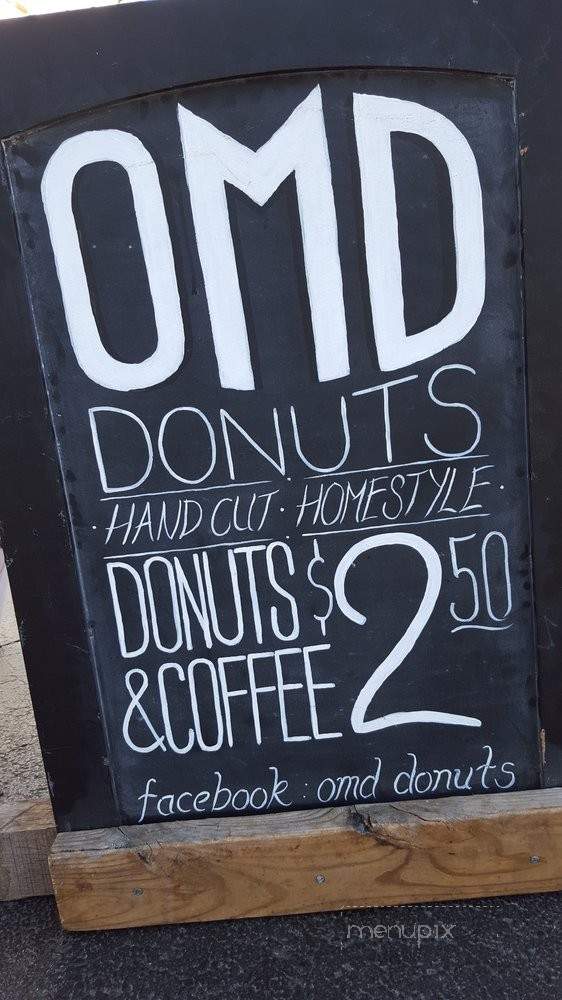 OMD
DONUTS
· HAND CUT · HOMESTYLE ·
DONUTS $2.50
& COFFEE
facebook : omd donuts
menupix